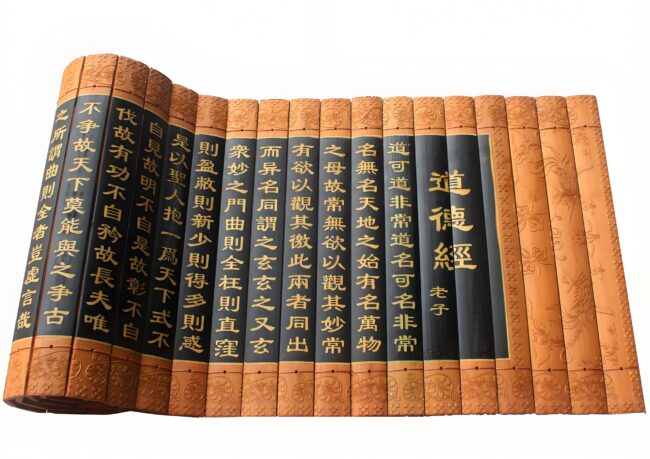 道德經
老子
道可道非常道名可名非常
名無名天地之始有名萬物
之母故常無欲以觀其妙常
有欲以觀其徼此兩者同出
而异名同謂之玄玄之又玄
衆妙之門曲則全枉則直窪
則盈敝則新少則得多則惑
是以聖人抱一爲天下式不
自見故明不自是故彰不自
伐故有功不自矜故長夫唯
不争故天下莫能與之争古
之所謂曲則全者豈虛言哉